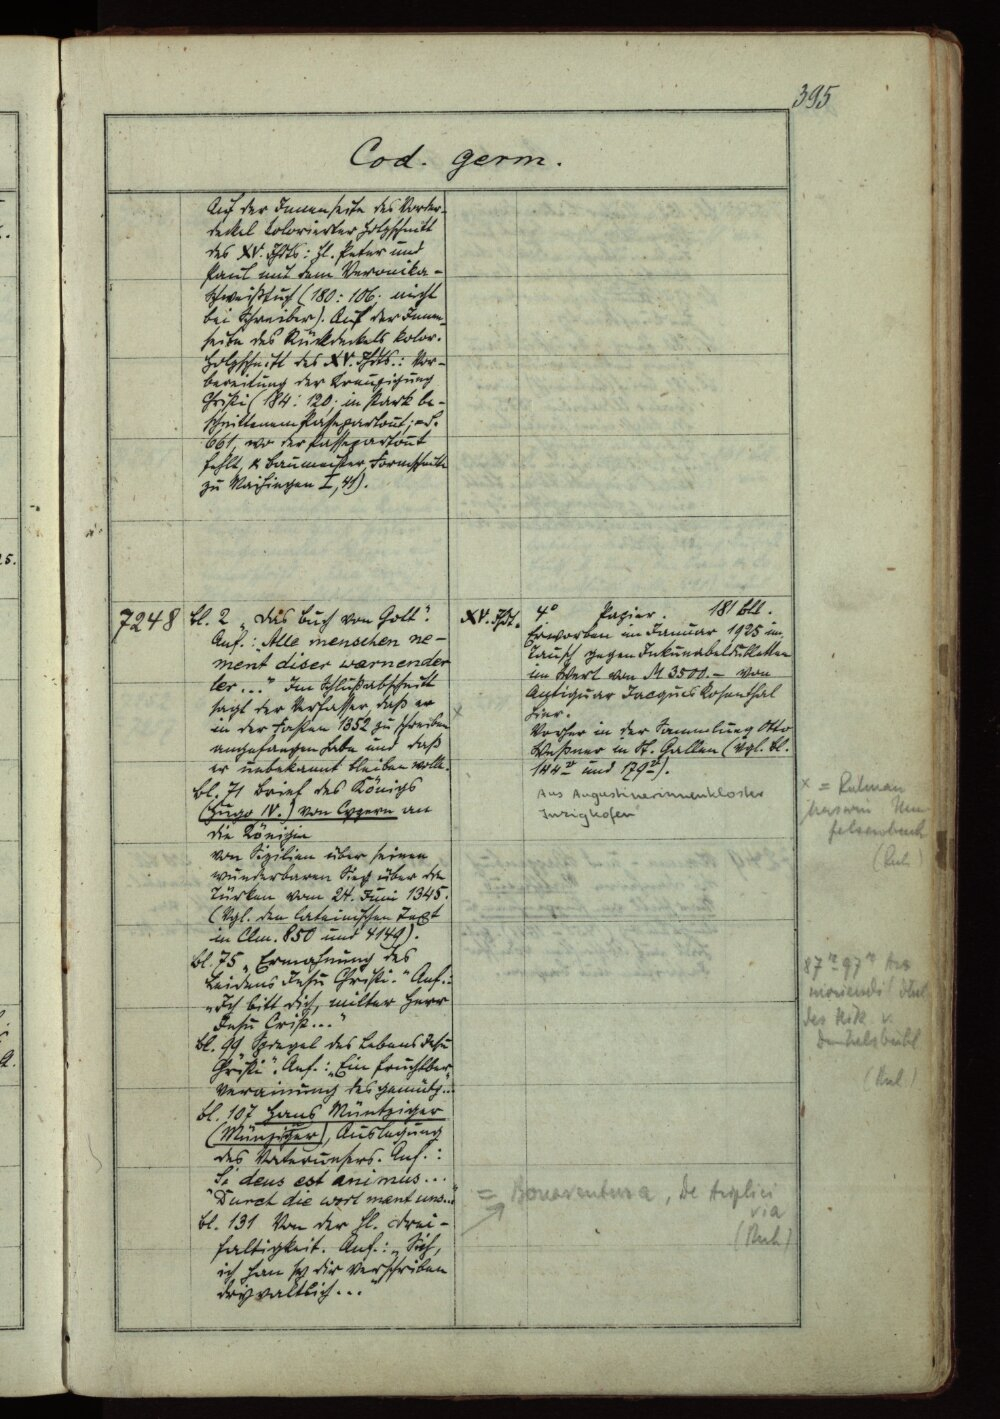 395
Cod. germ.
Auf der Innenseite des Vorder-
deckel kolorierter Holzschnitt
des XV. Jhdts: Hl. Peter und
Paul mit dem Veronika-
Schweißtuch (180:106. nicht
bei Schreiber). Auf der Innen-
seite des Rückdeckels kolor.
Holzschnitt des XV. Jhdts.: Vor-
bereitung der Kreuzigung
Christi (184:120; in stark be-
schnittenem Passepartout; =S.
661, wo der Passepartout
fehlt, Baumeister, Formschnitte
zu Maihingen I, 41).
7248
bl. 2 „Das Buch von Gott".
Anf.: „Alle menschen ne-
ment diser warnender
ler..." Im Schlußabschnitt
sagt der Verfasser, daß er
in der Fasten 1352 zu schreiben
angefangen habe und daß
er unbekannt bleiben wolle.
bl. 71 Brief des Königs
(Hugo IV.) von Cypern an
die Königin
von Sizilien über seinen
wunderbaren Sieg über die
Türken vom 24. Juni 1345.
(Vgl. den lateinischen Text
in Clm. 850 und 4149).
bl. 75 „Ermahnung des
Leidens Jesu Christi." Anf.:
„Ich bitt dich, milter Herr
Jesu Crist..."
bl. 99 Spiegel des Lebens Jesu
Christi". Anf.: „Ein fruchtber
verainung des gemütz..."
bl. 107 Hans Müntziger
(Münziger), Auslegung
des Vaterunsers. Anf.:
Si deus est animus...
"Durch die wort ment uns..."
bl. 131 Von der hl. Drei-
faltigkeit. Anf.: „Sich,
ich han hy dir verschriben
dryvaltlich..."
XV. Jhdt.
4° Papier. 181 bll.
Erworben im Januar 1925 im
Tausch gegen Inkunabeldubletten
im Wert von M 3500.– von
Antiquar Jacques Rosenthal
hier.
Vorher in der Sammlung Otto
Weßner in St. Gallen (Vgl. bl.
144v und 179v).
Aus Augustinerinnenkloster
Inzigkofen
x = Rulman
Merswin Neun-
felsenbuch
(Ruh)
87r-97r Ars
moriendi
des Nik. v.
Dinkelsbühl
(Ruh)
= Bonaventura, De triplici
via
(Ruh)